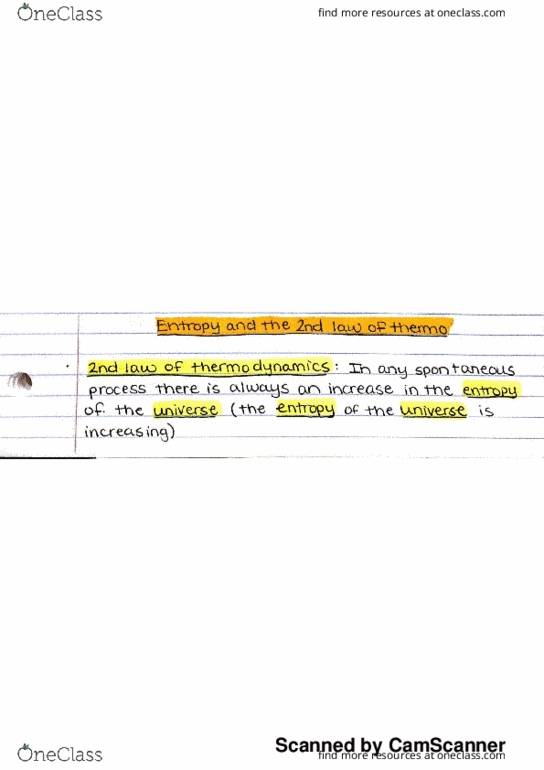 OneClass
find more resources at oneclass.com
Entropy and the 2nd law of thermo
2nd law of thermodynamics: In any spontaneous
process there is always an increase in the entropy
of the universe (the entropy of the universe is
increasing)
Scanned by CamScanner
OneClass
find more resources at oneclass.com